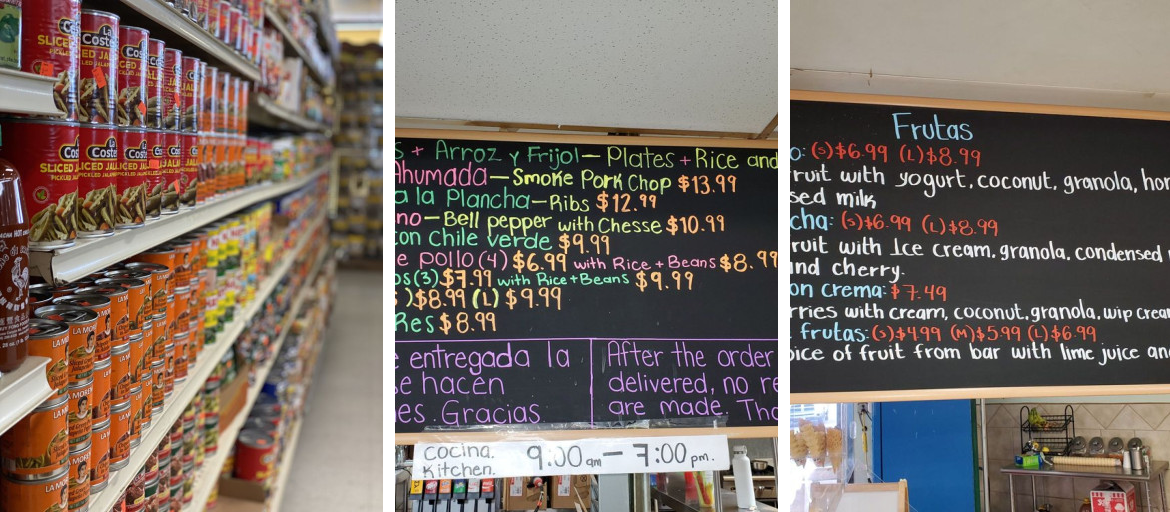 La
Coste
SLICED
LA MORE
s + Arroz y Frijol— Plates + Rice and
Ahumada—Smoke Pork Chop $13.99
a la Plancha—Ribs $12.99
no—Bell pepper with Chesse $10.99
con Chile verde $9.99
e pollo (4) $6.99 with Rice + Beans $8.99
os (3) $7.99 with Rice + Beans $9.99
) $8.99 (L) $9.99
Res $8.99
e entregada la
se hacen
es. Gracias
After the order
delivered, no re
are made. Tha
COCINA.
Kitchen.
9:00 am — 7:00 pm.
Frutas
o: (S)$6.99 (L)$8.99
ruit with yogurt, coconut, granola, hon
sed milk
cha: (S)$6.99 (L)$8.99
ruit with Ice cream, granola, condensed
and cherry.
on crema: $7.49
rries with cream, coconut, granola, wip crea
frutas: (S)$4.99 (M)$5.99 (L)$6.99
oice of fruit from bar with lime juice an